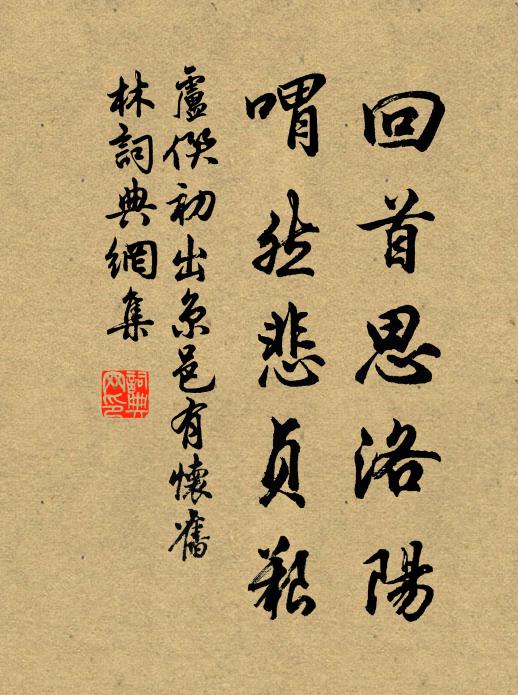 回首思洛陽
喟然悲貞艱
盧僎初出京邑有懷舊
林詞典網集
詞典
网印